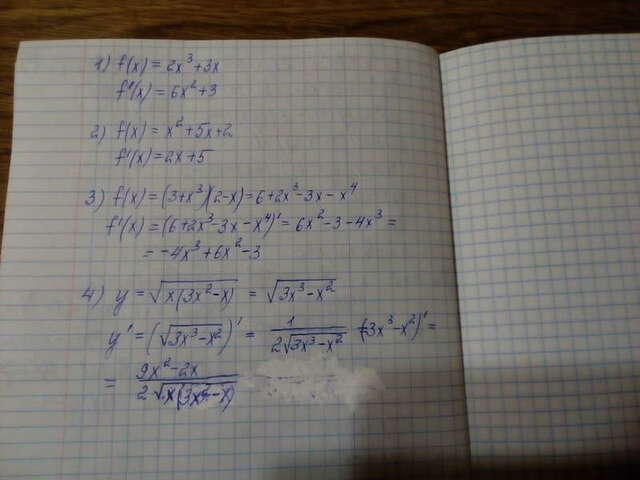 1) f(x) = 2x³+3x
f'(x) = 6x²+3
2) f(x) = x²+5x+2
f'(x) = 2x+5
3) f(x) = (3+x³)(2-x) = 6+2x³-3x-x⁴
f'(x) = (6+2x³-3x-x⁴)' = 6x²-3-4x³ =
= -4x³+6x²-3
4) y = √(x(3x²-x)) = √(3x³-x²)
y' = (√(3x³-x²))' = 1/(2√(3x³-x²)) · (3x³-x²)' =
= (9x²-2x)/(2√(x(3x²-x)))